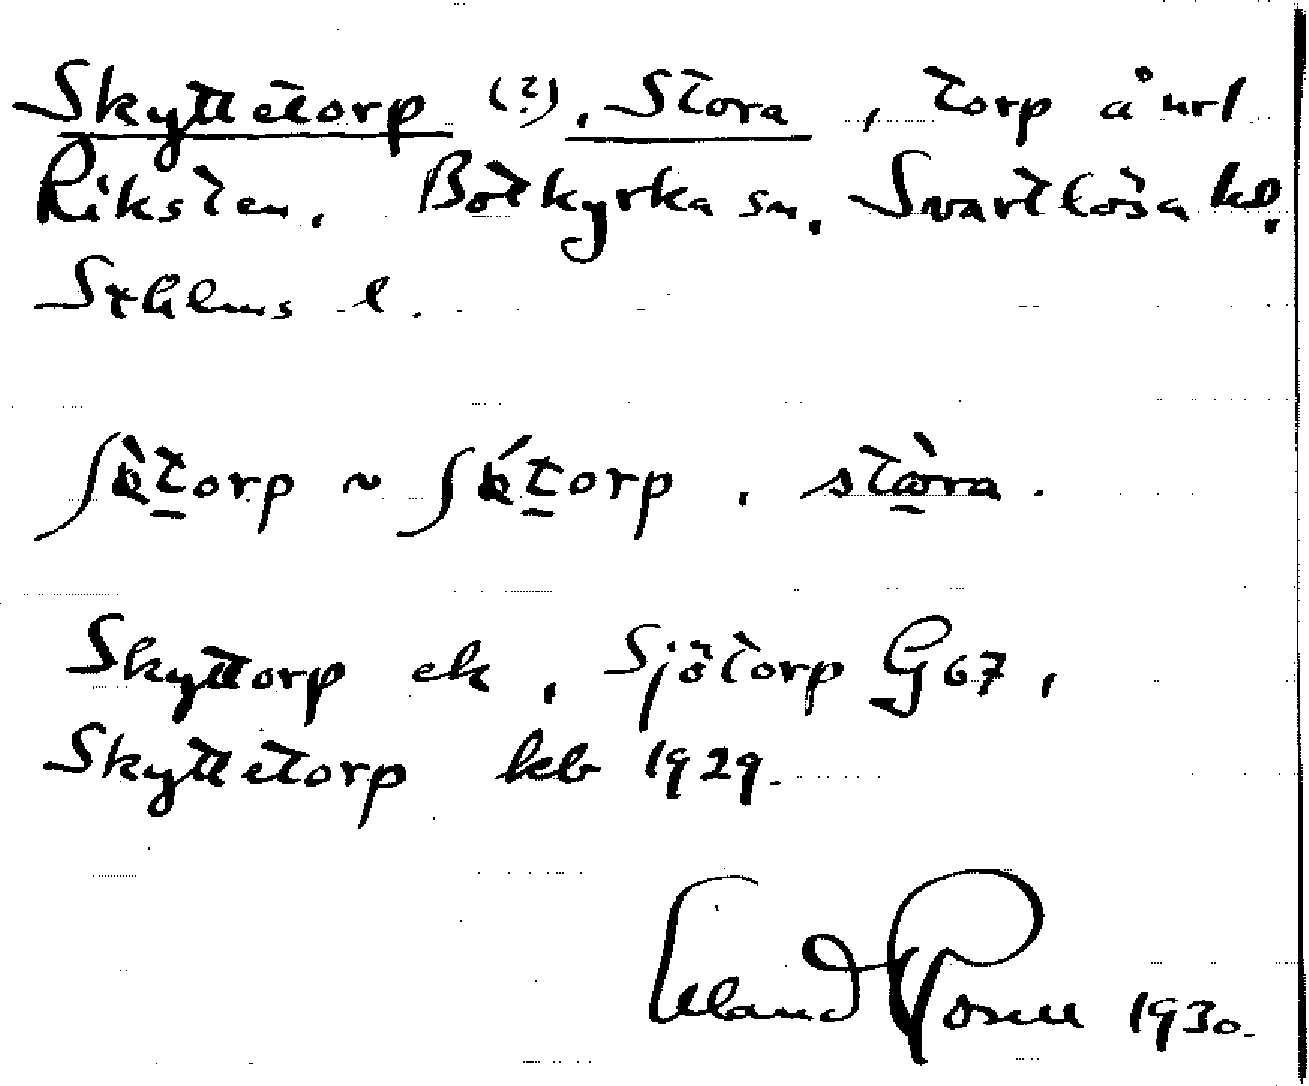 Skyttetorp (?), Stora, torp å url
Riksten, Botkyrka sn, Svartlösa hd,
Sthlms l.
stora.
Skyttorp ek, Sjötorp G67,
Skyttetorp kb 1929.
Erland Rosell 1930.